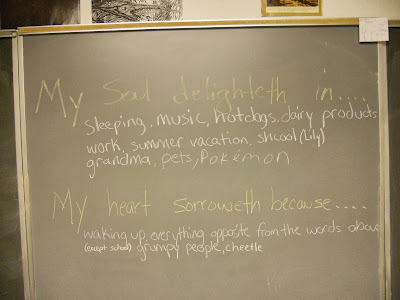 My Soul delighteth in....
sleeping, music, hotdogs, dairy products
work, summer vacation, shcool (Lily)
grandma, pets, Pokémon
My heart sorroweth because....
waking up, everything opposite from the words above
(except school) grumpy people, cheetle